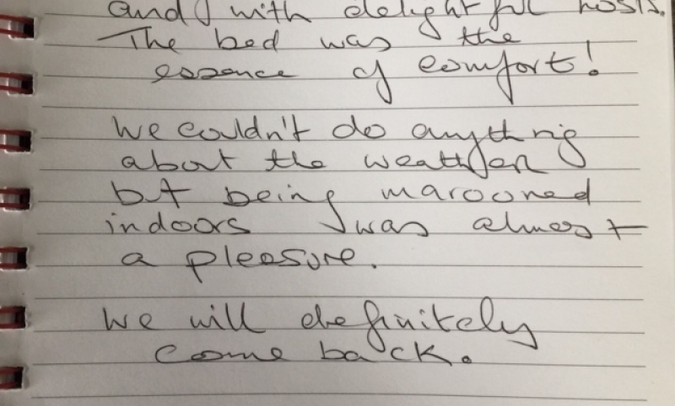 and with delightful hosts.
The bed was the
essence of comfort!
We couldn't do anything
about the weather
but being marooned
indoors was almost
a pleasure.
We will definitely
come back.